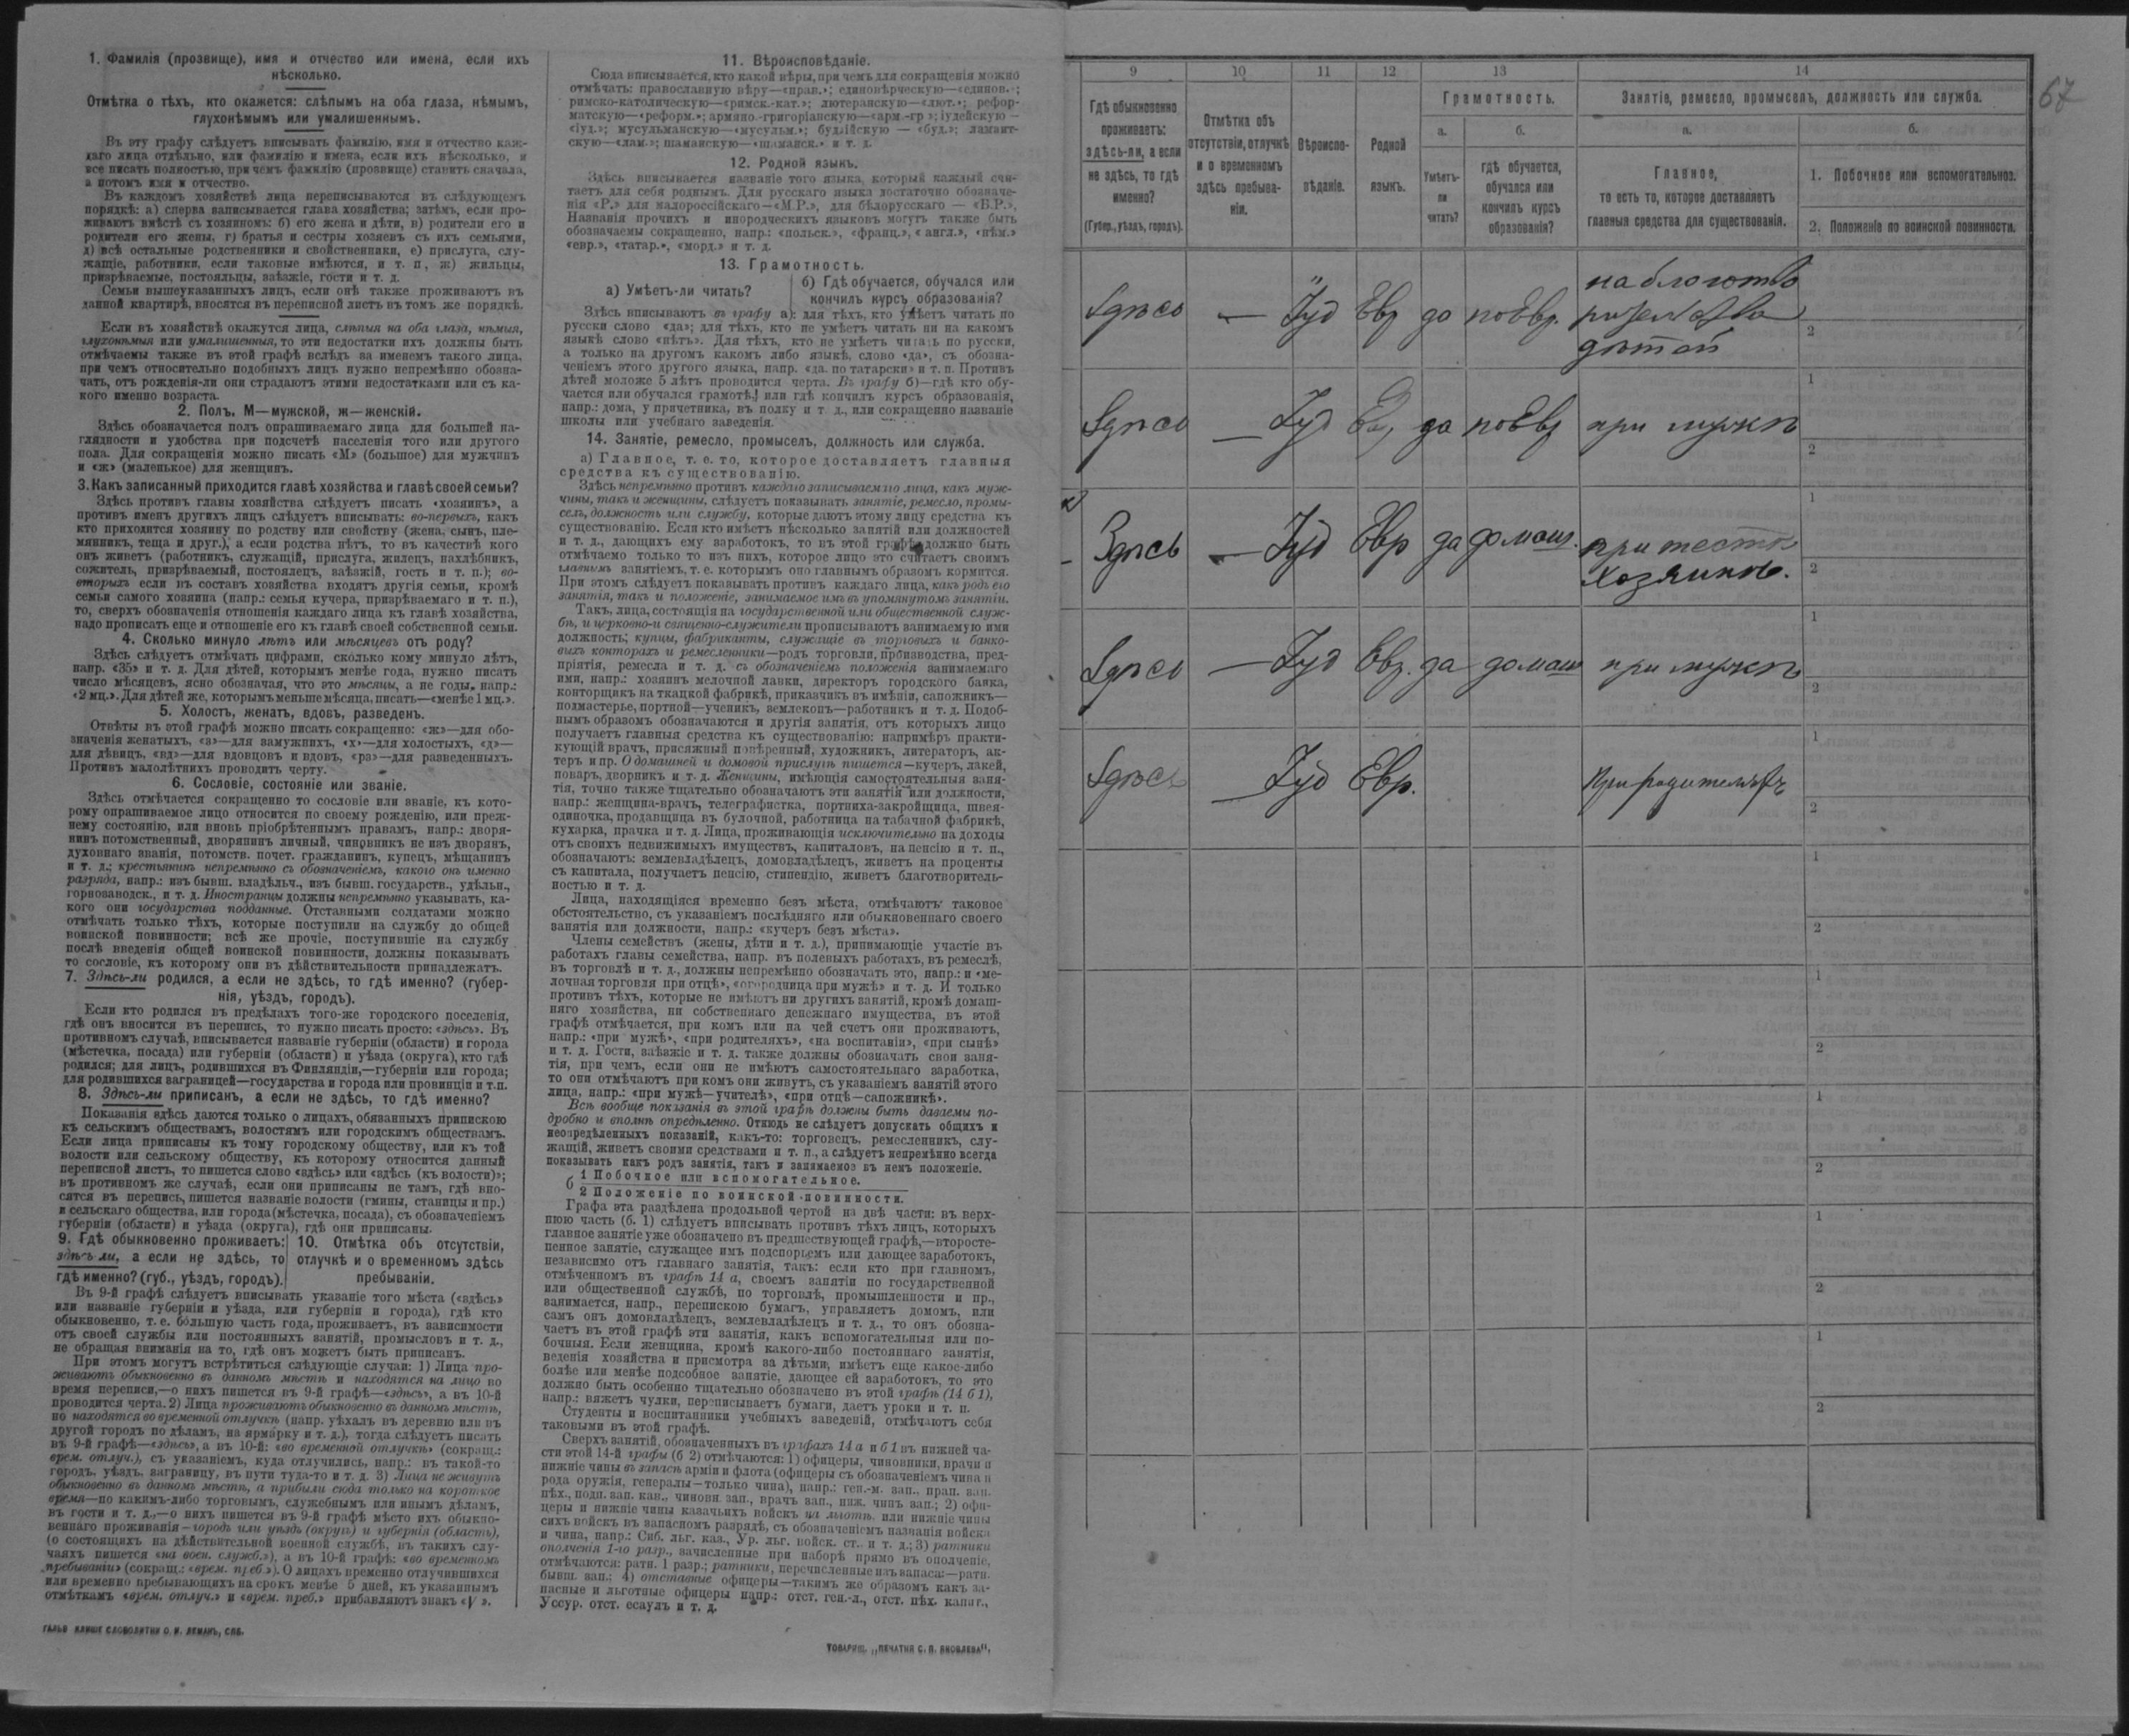 1. Фамилія (прозвище), имя и отчество или имена, если ихъ
нѣсколько.
Отмѣтка о тѣхъ, кто окажется: слѣпымъ на оба глаза, нѣмымъ,
глухонѣмымъ или умалишеннымъ.
Въ эту графу слѣдуетъ вписывать фамилію, имя и отчество каж-
даго лица отдѣльно, или фамилію и имена, если ихъ нѣсколько, и
все писать полностью, при чемъ фамилію (прозвище) ставить сначала,
а потомъ имя и отчество.
Въ каждомъ хозяйствѣ лица переписываются въ слѣдующемъ
порядкѣ: а) сперва записывается глава хозяйства; затѣмъ, если про-
живаютъ вмѣстѣ съ хозяиномъ: б) его жена и дѣти, в) родители его и
родители его жены, г) братья и сестры хозяевъ съ ихъ семьями,
д) всѣ остальные родственники и свойственники, е) прислуга, слу-
жащіе, работники, если таковые имѣются, и т. п., ж) жильцы,
призрѣваемые, постояльцы, заѣзжіе, гости и т. д.
Семьи вышеуказанныхъ лицъ, если онѣ также проживаютъ въ
данной квартирѣ, вносятся въ переписной листъ въ томъ же порядкѣ.
Если въ хозяйствѣ окажутся лица, слѣпыя на оба глаза, нѣмыя,
глухонѣмыя или умалишенныя, то эти недостатки ихъ должны быть
отмѣчаемы также въ этой графѣ вслѣдъ за именемъ такого лица,
при чемъ относительно подобныхъ лицъ нужно непремѣнно обозна-
чать, отъ рожденія-ли они страдаютъ этими недостатками или съ ка-
кого именно возраста.
2. Полъ. М—мужской, ж—женскій.
Здѣсь обозначается полъ опрашиваемаго лица для большей на-
глядности и удобства при подсчетѣ населенія того или другого
пола. Для сокращенія можно писать «М» (большое) для мужчинъ
и «ж» (маленькое) для женщинъ.
3. Какъ записанный приходится главѣ хозяйства и главѣ своей семьи?
Здѣсь противъ главы хозяйства слѣдуетъ писать «хозяинъ», а
противъ именъ другихъ лицъ слѣдуетъ вписывать: во-первыхъ, какъ
кто приходится хозяину по родству или свойству (жена, сынъ, пле-
мянникъ, теща и друг.), а если родства нѣтъ, то въ качествѣ кого
онъ живетъ (работникъ, служащій, прислуга, жилецъ, нахлѣбникъ,
сожитель, призрѣваемый, постоялецъ, заѣзжій, гость и т. п.); во-
вторыхъ если въ составъ хозяйства входятъ другія семьи, кромѣ
семьи самого хозяина (напр.: семья кучера, призрѣваемаго и т. п.),
то, сверхъ обозначенія отношенія каждаго лица къ главѣ хозяйства,
надо прописать еще и отношеніе его къ главѣ своей собственной семьи.
4. Сколько минуло лѣтъ или мѣсяцевъ отъ роду?
Здѣсь слѣдуетъ отмѣчать цифрами, сколько кому минуло лѣтъ,
напр. «35» и т. д. Для дѣтей, которымъ менѣе года, нужно писать
число мѣсяцевъ, ясно обозначая, что это мѣсяцы, а не годы, напр.:
«2 мц.». Для дѣтей же, которымъ меньше мѣсяца, писать—«менѣе 1 мц.».
5. Холостъ, женатъ, вдовъ, разведенъ.
Отвѣты въ этой графѣ можно писать сокращенно: «ж»—для обо-
значенія женатыхъ, «з»—для замужнихъ, «х»—для холостыхъ, «д»—
для дѣвицъ, «вд»—для вдовцовъ и вдовъ, «рз»—для разведенныхъ.
Противъ малолѣтнихъ проводить черту.
6. Сословіе, состояніе или званіе.
Здѣсь отмѣчается сокращенно то сословіе или званіе, къ кото-
рому опрашиваемое лицо относится по своему рожденію, или преж-
нему состоянію, или вновь пріобрѣтеннымъ правамъ, напр.: дворя-
нинъ потомственный, дворянинъ личный, чиновникъ не изъ дворянъ,
духовнаго званія, потомств. почет. гражданинъ, купецъ, мѣщанинъ
и т. д.; крестьянинъ непремѣнно съ обозначеніемъ, какого онъ именно
разряда, напр.: изъ бывш. владѣльч., изъ бывш. государств., удѣльн.,
горнозаводск., и т. д. Иностранцы должны непремѣнно указывать, ка-
кого они государства подданные. Отставными солдатами можно
отмѣчать только тѣхъ, которые поступили на службу до общей
воинской повинности; всѣ же прочіе, поступившіе на службу
послѣ введенія общей воинской повинности, должны показывать
то сословіе, къ которому они въ дѣйствительности принадлежатъ.
7. Здѣсь-ли родился, а если не здѣсь, то гдѣ именно? (губер-
нія, уѣздъ, городъ).
Если кто родился въ предѣлахъ того-же городского поселенія,
гдѣ онъ вносится въ перепись, то нужно писать просто: «здѣсь». Въ
противномъ случаѣ, вписывается названіе губерніи (области) и города
(мѣстечка, посада) или губерніи (области) и уѣзда (округа), кто гдѣ
родился; для лицъ, родившихся въ Финляндіи,—губерніи или города;
для родившихся заграницей—государства и города или провинціи и т.п.
8. Здѣсь-ли приписанъ, а если не здѣсь, то гдѣ именно?
Показанія здѣсь даются только о лицахъ, обязанныхъ припискою
къ сельскимъ обществамъ, волостямъ или городскимъ обществамъ.
Если лица приписаны къ тому городскому обществу, или къ той
волости или сельскому обществу, къ которому относится данный
переписной листъ, то пишется слово «здѣсь» или «здѣсь (къ волости)»;
въ противномъ же случаѣ, если они приписаны не тамъ, гдѣ вно-
сятся въ перепись, пишется названіе волости (гмины, станицы и пр.)
и сельскаго общества, или города (мѣстечка, посада), съ обозначеніемъ
губерніи (области) и уѣзда (округа), гдѣ они приписаны.
9. Гдѣ обыкновенно проживаетъ:
здѣсь ли, а если не здѣсь, то
гдѣ именно? (губ., уѣздъ, городъ).
10. Отмѣтка объ отсутствіи,
отлучкѣ и о временномъ здѣсь
пребываніи.
Въ 9-й графѣ слѣдуетъ вписывать указаніе того мѣста («здѣсь»
или названіе губерніи и уѣзда, или губерніи и города), гдѣ кто
обыкновенно, т. е. бо́льшую часть года, проживаетъ, въ зависимости
отъ своей службы или постоянныхъ занятій, промысловъ и т. д.,
не обращая вниманія на то, гдѣ онъ можетъ быть приписанъ.
При этомъ могутъ встрѣтиться слѣдующіе случаи: 1) Лица про-
живаютъ обыкновенно въ данномъ мѣстѣ и находятся на лицо во
время переписи,—о нихъ пишется въ 9-й графѣ—«здѣсь», а въ 10-й
проводится черта. 2) Лица проживаютъ обыкновенно въ данномъ мѣстѣ,
но находятся во временной отлучкѣ (напр. уѣхалъ въ деревню или въ
другой городъ по дѣламъ, на ярмарку и т. д.), тогда слѣдуетъ писать
въ 9-й графѣ—«здѣсь», а въ 10-й: «во временной отлучкѣ» (сокращ.:
врем. отлуч.), съ указаніемъ, куда отлучились, напр.: въ такой-то
городъ, уѣздъ, заграницу, въ пути туда-то и т. д. 3) Лица не живутъ
обыкновенно въ данномъ мѣстѣ, а прибыли сюда только на короткое
время—по какимъ-либо торговымъ, служебнымъ или инымъ дѣламъ,
въ гости и т. д.,—о нихъ пишется въ 9-й графѣ мѣсто ихъ обыкно-
веннаго проживанія—городъ или уѣздъ (округъ) и губернія (область),
(о состоящихъ на дѣйствительной военной службѣ, въ такихъ слу-
чаяхъ пишется «на воен. служб.»), а въ 10-й графѣ: «во временномъ
пребываніи» (сокращ.: «врем. преб.»). О лицахъ временно отлучившихся
или временно пребывающихъ на срокъ менѣе 5 дней, къ указаннымъ
отмѣткамъ «врем. отлуч.» и «врем. преб.» прибавляютъ знакъ «V».
ГАЛЬВ КЛИШЕ СЛОВОЛИТНИ О. И. ЛЕМАНЪ, СПБ.
11. Вѣроисповѣданіе.
Сюда вписывается, кто какой вѣры, при чемъ для сокращенія можно
отмѣчать: православную вѣру—«прав.»; единовѣрческую—«единов.»;
римско-католическую—«римск.-кат.»; лютеранскую—«лют.»; рефор-
матскую—«реформ.»; армяно-григоріанскую—«арм.-гр.»; іудейскую—
«іуд.»; мусульманскую—«мусульм.»; буддійскую — «буд.»; ламаит-
скую—«лам.»; шаманскую—«шаманск.» и т. д.
12. Родной языкъ.
Здѣсь вписывается названіе того языка, который каждый счи-
таетъ для себя роднымъ. Для русскаго языка достаточно обозначе-
нія «Р.» для малороссійскаго—«М.Р.», для бѣлорусскаго — «Б.Р.».
Названія прочихъ и инородческихъ языковъ могутъ также быть
обозначаемы сокращенно, напр.: «польск.», «франц.», «англ.», «нѣм.»
«евр.», «татар.», «морд.» и т. д.
13. Грамотность.
а) Умѣетъ-ли читать?
б) Гдѣ обучается, обучался или
кончилъ курсъ образованія?
Здѣсь вписываютъ въ графу а): для тѣхъ, кто умѣетъ читать по
русски слово «да»; для тѣхъ, кто не умѣетъ читать ни на какомъ
языкѣ слово «нѣтъ». Для тѣхъ, кто не умѣетъ читать по русски,
а только на другомъ какомъ либо языкѣ, слово «да», съ обозна-
ченіемъ этого другого языка, напр. «да. по татарски» и т. п. Противъ
дѣтей моложе 5 лѣтъ проводится черта. Въ графу б)—гдѣ кто обу-
чается или обучался грамотѣ, или гдѣ кончилъ курсъ образованія,
напр.: дома, у причетника, въ полку и т. д., или сокращенно названіе
школы или учебнаго заведенія.
14. Занятіе, ремесло, промыселъ, должность или служба.
а) Главное, т. е. то, которое доставляетъ главныя
средства къ существованію.
Здѣсь непремѣнно противъ каждаго записываемаго лица, какъ муж-
чины, такъ и женщины, слѣдуетъ показывать занятіе, ремесло, промы-
селъ, должность или службу, которые даютъ этому лицу средства къ
существованію. Если кто имѣетъ нѣсколько занятій или должностей
и т. д., дающихъ ему заработокъ, то въ этой графѣ должно быть
отмѣчаемо только то изъ нихъ, которое лицо это считаетъ своимъ
главнымъ занятіемъ, т. е. которымъ оно главнымъ образомъ кормится.
При этомъ слѣдуетъ показывать противъ каждаго лица, какъ родъ его
занятія, такъ и положеніе, занимаемое имъ въ упомянутомъ занятіи.
Такъ, лица, состоящія на государственной или общественной служ-
бѣ, и церковно-и священно-служители прописываютъ занимаемую ими
должность; купцы, фабриканты, служащіе въ торговыхъ и банко-
выхъ конторахъ и ремесленники—родъ торговли, производства, пред-
пріятія, ремесла и т. д. съ обозначеніемъ положенія занимаемаго
ими, напр.: хозяинъ мелочной лавки, директоръ городского банка,
конторщикъ на ткацкой фабрикѣ, приказчикъ въ имѣніи, сапожникъ—
подмастерье, портной—ученикъ, землекопъ—работникъ и т. д. Подоб-
нымъ образомъ обозначаются и другія занятія, отъ которыхъ лицо
получаетъ главныя средства къ существованію: напримѣръ практи-
кующій врачъ, присяжный повѣренный, художникъ, литераторъ, ак-
теръ и пр. О домашней и домовой прислугѣ пишется—кучеръ, лакей,
поваръ, дворникъ и т. д. Женщины, имѣющія самостоятельныя заня-
тія, точно также тщательно обозначаютъ эти занятія или должности,
напр.: женщина-врачъ, телеграфистка, портниха-закройщица, швея-
одиночка, продавщица въ булочной, работница на табачной фабрикѣ,
кухарка, прачка и т. д. Лица, проживающія исключительно на доходы
отъ своихъ недвижимыхъ имуществъ, капиталовъ, на пенсію и т. п.,
обозначаютъ: землевладѣлецъ, домовладѣлецъ, живетъ на проценты
съ капитала, получаетъ пенсію, стипендію, живетъ благотворитель-
ностью и т. д.
Лица, находящіяся временно безъ мѣста, отмѣчаютъ таковое
обстоятельство, съ указаніемъ послѣдняго или обыкновеннаго своего
занятія или должности, напр.: «кучеръ безъ мѣста».
Члены семействъ (жены, дѣти и т. д.), принимающіе участіе въ
работахъ главы семейства, напр. въ полевыхъ работахъ, въ ремеслѣ,
въ торговлѣ и т. д., должны непремѣнно обозначать это, напр.: и «ме-
лочная торговля при отцѣ», «огородница при мужѣ» и т. д. И только
противъ тѣхъ, которые не имѣютъ ни другихъ занятій, кромѣ домаш-
няго хозяйства, ни собственнаго денежнаго имущества, въ этой
графѣ отмѣчается, при комъ или на чей счетъ они проживаютъ,
напр.: «при мужѣ», «при родителяхъ», «на воспитаніи», «при сынѣ»
и т. д. Гости, заѣзжіе и т. д. также должны обозначать свои заня-
тія, при чемъ, если они не имѣютъ самостоятельнаго заработка,
то они отмѣчаютъ при комъ они живутъ, съ указаніемъ занятій этого
лица, напр.: «при мужѣ—учителѣ», «при отцѣ—сапожникѣ».
Всѣ вообще показанія въ этой графѣ должны быть даваемы по-
дробно и вполнѣ опредѣленно. Отнюдь не слѣдуетъ допускать общихъ и
неопредѣленныхъ показаній, какъ-то: торговецъ, ремесленникъ, слу-
жащій, живетъ своими средствами и т. п., а слѣдуетъ непремѣнно всегда
показывать какъ родъ занятія, такъ и занимаемое въ немъ положеніе.
б 1 Побочное или вспомогательное.
2 Положеніе по воинской повинности.
Графа эта раздѣлена продольной чертой на двѣ части: въ верх-
нюю часть (б. 1) слѣдуетъ вписывать противъ тѣхъ лицъ, которыхъ
главное занятіе уже обозначено въ предшествующей графѣ,—второсте-
пенное занятіе, служащее имъ подспорьемъ или дающее заработокъ,
независимо отъ главнаго занятія, такъ: если кто при главномъ,
отмѣченномъ въ графѣ 14 а, своемъ занятіи по государственной
или общественной службѣ, по торговлѣ, промышленности и пр.,
занимается, напр., перепискою бумагъ, управляетъ домомъ, или
самъ онъ домовладѣлецъ, землевладѣлецъ и т. д., то онъ обозна-
чаетъ въ этой графѣ эти занятія, какъ вспомогательныя или по-
бочныя. Если женщина, кромѣ какого-либо постояннаго занятія,
веденія хозяйства и присмотра за дѣтьми, имѣетъ еще какое-либо
болѣе или менѣе подсобное занятіе, дающее ей заработокъ, то это
должно быть особенно тщательно обозначено въ этой графѣ (14 б 1),
напр.: вяжетъ чулки, переписываетъ бумаги, даетъ уроки и т. п.
Студенты и воспитанники учебныхъ заведеній, отмѣчаютъ себя
таковыми въ этой графѣ.
Сверхъ занятій, обозначенныхъ въ графахъ 14 а и б 1 въ нижней ча-
сти этой 14-й графы (б 2) отмѣчаются: 1) офицеры, чиновники, врачи и
нижніе чины въ запасѣ арміи и флота (офицеры съ обозначеніемъ чина и
рода оружія, генералы—только чина), напр.: ген.-м. зап., прап. зап.
пѣх., подп. зап. кав., чиновн. зап., врачъ зап., ниж. чинъ зап.; 2) офи-
церы и нижніе чины казачьихъ войскъ на льготѣ или нижніе чины
сихъ войскъ въ запасномъ разрядѣ, съ обозначеніемъ названія войска
и чина, напр.: Сиб. льг. каз., Ур. льг. войск. ст. и т. д.; 3) ратники
ополченія 1-го разр., зачисленные при наборѣ прямо въ ополченіе,
отмѣчаются: ратн. 1 разр.; ратники, перечисленные изъ запаса:—ратн.
бывш. зап.; 4) отставные офицеры—такимъ же образомъ какъ за-
пасные и льготные офицеры напр.: отст. ген.-л., отст. пѣх. капит.,
Уссур. отст. есаулъ и т. д.
ТОВАРИЩ. „ПЕЧАТНЯ С. П. ЯКОВЛЕВА".
67
9 10 11 12 13 14
Гдѣ обыкновенно
проживаетъ:
здѣсь-ли, а если
не здѣсь, то гдѣ
именно?
(Губер., уѣздъ, городъ).
Отмѣтка объ
отсутствіи, отлучкѣ
и о временномъ
здѣсь пребыва-
ніи.
Вѣроиспо-
вѣданіе.
Родной
языкъ.
Грамотность.
а.
Умѣетъ-
ли
читать?
б.
гдѣ обучается,
обучался или
кончилъ курсъ
образованія?
Занятіе, ремесло, промыселъ, должность или служба.
а.
Главное,
то есть то, которое доставляетъ
главныя средства для существованія.
б.
1. Побочное или вспомогательное.
2. Положеніе по воинской повинности.
Здѣсь — Іуд Евр да по Евр.
дѣтей
2
1
Здѣсь — Іуд Евр да по Евр при мужѣ
2
1
Здѣсь — Іуд Евр да домаш. при тестѣ
хозяинѣ.
2
1
Здѣсь — Іуд Евр. да домаш при мужѣ
2
1
Здѣсь — Іуд Евр. При родителяхъ
2
1
2
1
2
1
2
1
2
1
2